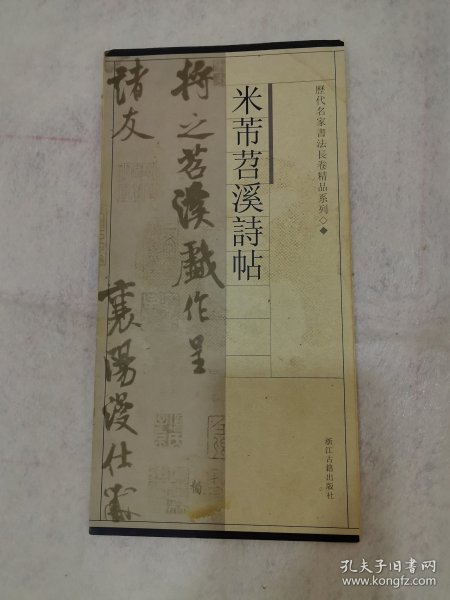 歷代名家書法長卷精品系列◇◆
米芾苕溪詩帖
浙江古籍出版社
將之苕溪戲作呈
諸友
襄陽漫仕黻
孔夫子旧书网
www.kongfz.com